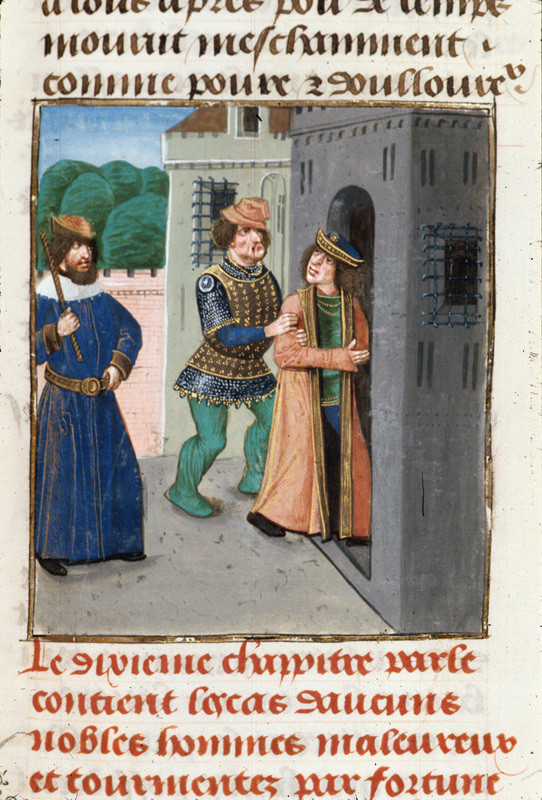 a tous apres pou de temps
mourut meschamment
comme poure & doulloureux
Le dixieme chappitre parle
contient les cas daucuns
nobles hommes maleureux
et tourmentez par fortune